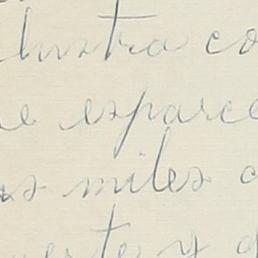 lustra co
e esparce
as miles d
uerte y d